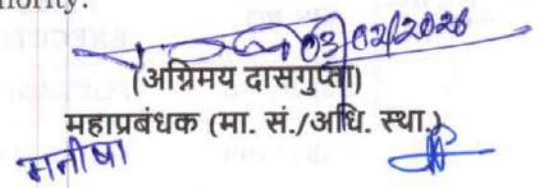 hority.
03/02/2026
(अग्निमय दासगुप्ता)
महाप्रबंधक (मा. सं./अधि. स्था.)
मनीषा